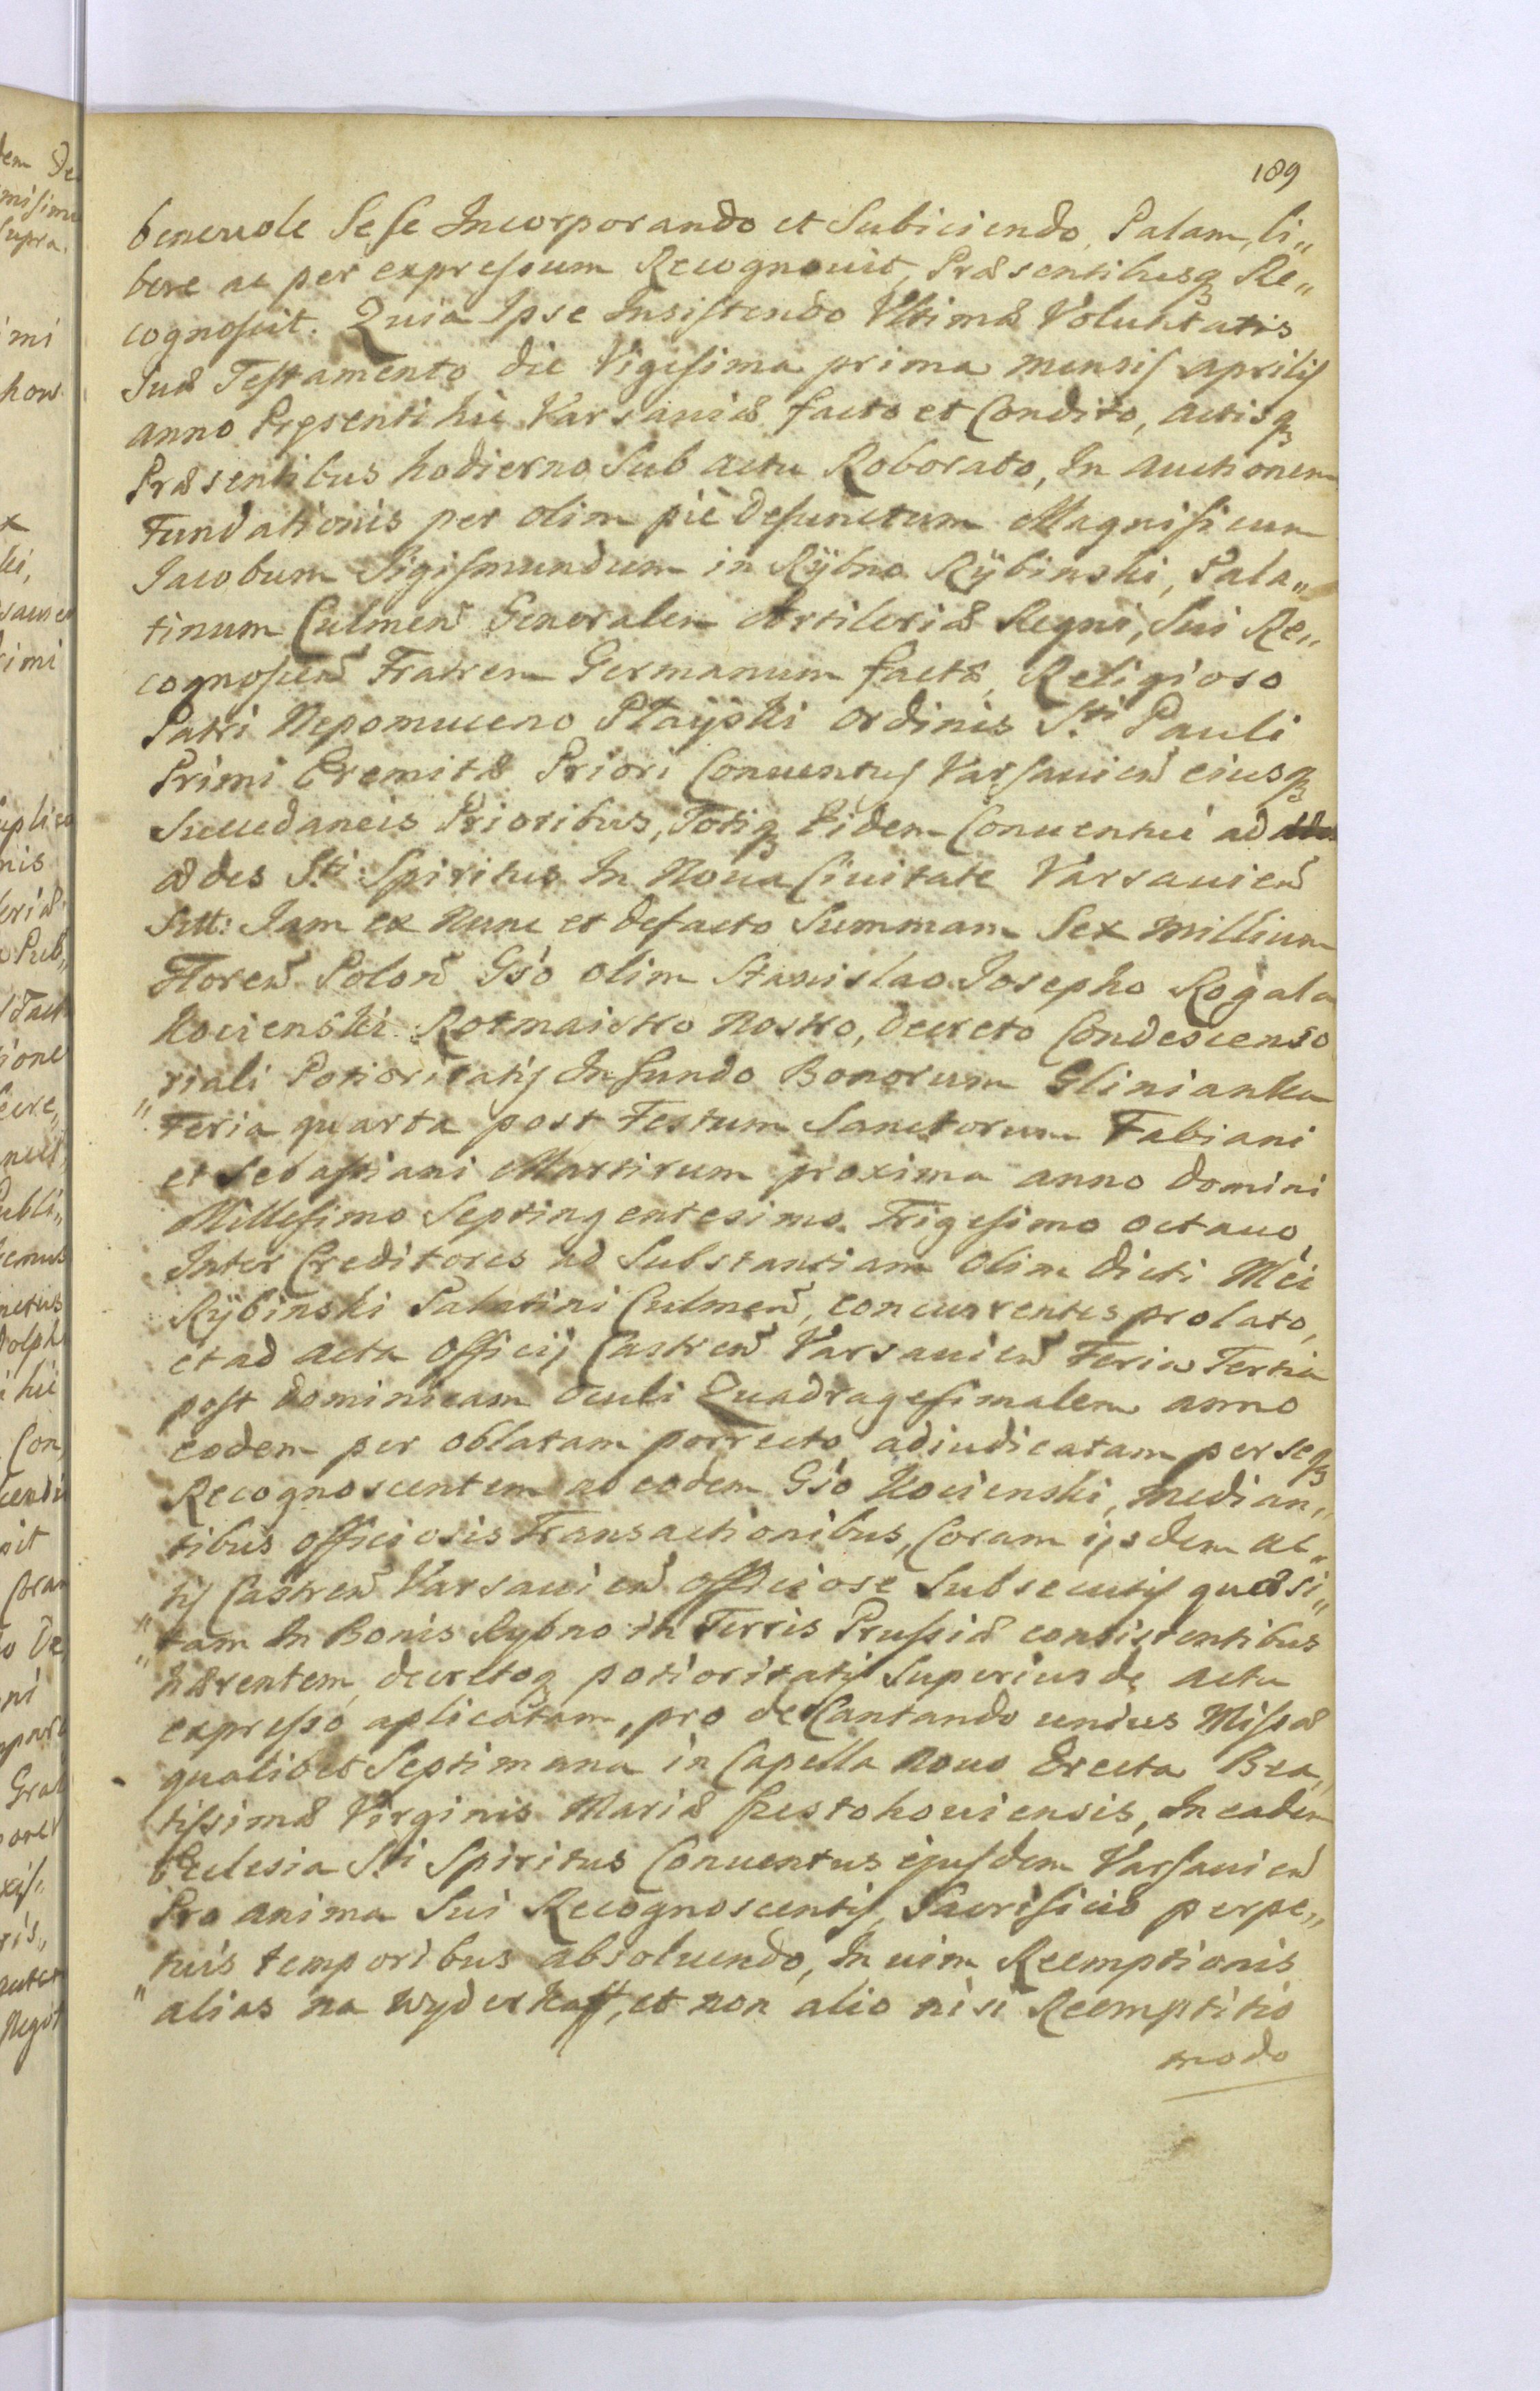 189
beneuole Sese Incorporando et Subiciendo, Palam, li„
bere ac per expressum Recognouit, Præsentibusq Re„
cognoscit. Quia Ipse Insistendo Vltimæ Voluntatis
Suæ Testamento die Vigesima prima mensis Aprilis
anno Pręsenti hic Varsauiæ facto et Condito, actisq
Præsentibus hodierno Sub actu Roborato, In auctionem
Fundationis per olim piè defunctum Magnificum
Iacobum Sigismundum in Rÿbno Rÿbinski, Pala„
tinum Culmen̄ Generalem Artileriæ Regni, Sui Re„
cognoscen̄ Fratrem Germanum factæ, Religioso
Patri Nepomuceno Ptaÿski Ordinis S.ti Pauli
Primi Eremitæ Priori Conuentus Varsauien̄ eiusq
Succedaneis Prioribus, Totiq Eidem Conuentui ad
ædes S.ti Spiritus In Noua Ciuitate Varsauien̄
Sitt: Iam ex Nunc et defacto Summam Sex millium
Floren̄ Polon̄ Gso olim Stanislao Iosepho Rogala
Kocienski Rotmaistro Nostro, decreto Condescenso
„riali Potioritatis In fundo Bonorum Glinianka
Feria quarta post Festum Sanctorum Fabiani
et Sebastiani Martirum proxima anno Domini
Millesimo Septingentesimo Trigesimo octauo,
Inter Creditores ad Substantiam Olim dicti Mci
Rÿbinski Palatini Culmen̄, concurrentes prolato,
et ad acta Officij Castren̄ Varsauien̄ Feria Tertia
post Dominicam Oculi Quadragesimalem anno
eodem per oblatam porrecto adiudicatam perseq
Recognoscentem ab eodem Gso Kocienski, median„
tibus officiosis Transactionibus, Coram ijsdem ac„
tis Castren̄ Varsauien̄ officiose Subsecutis quæsi„
„tam In Bonis Rybno in Terris Prussiæ consistentibus
hærentem, decretoq potioritatis Superius de actu
expresso aplicatam, pro deCantando unius Missæ
qualibet Septimana in Capella nouo Erecta Bea„
tissimæ Virginis Mariæ Częstochouiensis, In eadem
Ecclesia S.ti Spiritus Conuentus ejusdem Varsauien̄
Pro anima Sui Recognoscentis, Sacrificio perpe„
tuis temporibus absoluendo, In uim Reemptionis
„alias na wyderkaff, et non alio nisi Reemptitio
modo